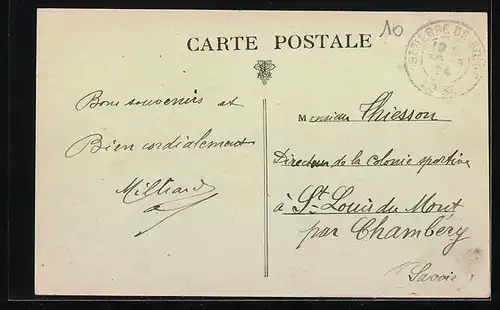 10
CARTE POSTALE
ST PIERRE DE
Bons souvenirs et
Bien cordialement
Milliard
Monsieur Thiesson
Directeur de la colonie sportive
à St Louis du Mont
par Chambéry
Savoie